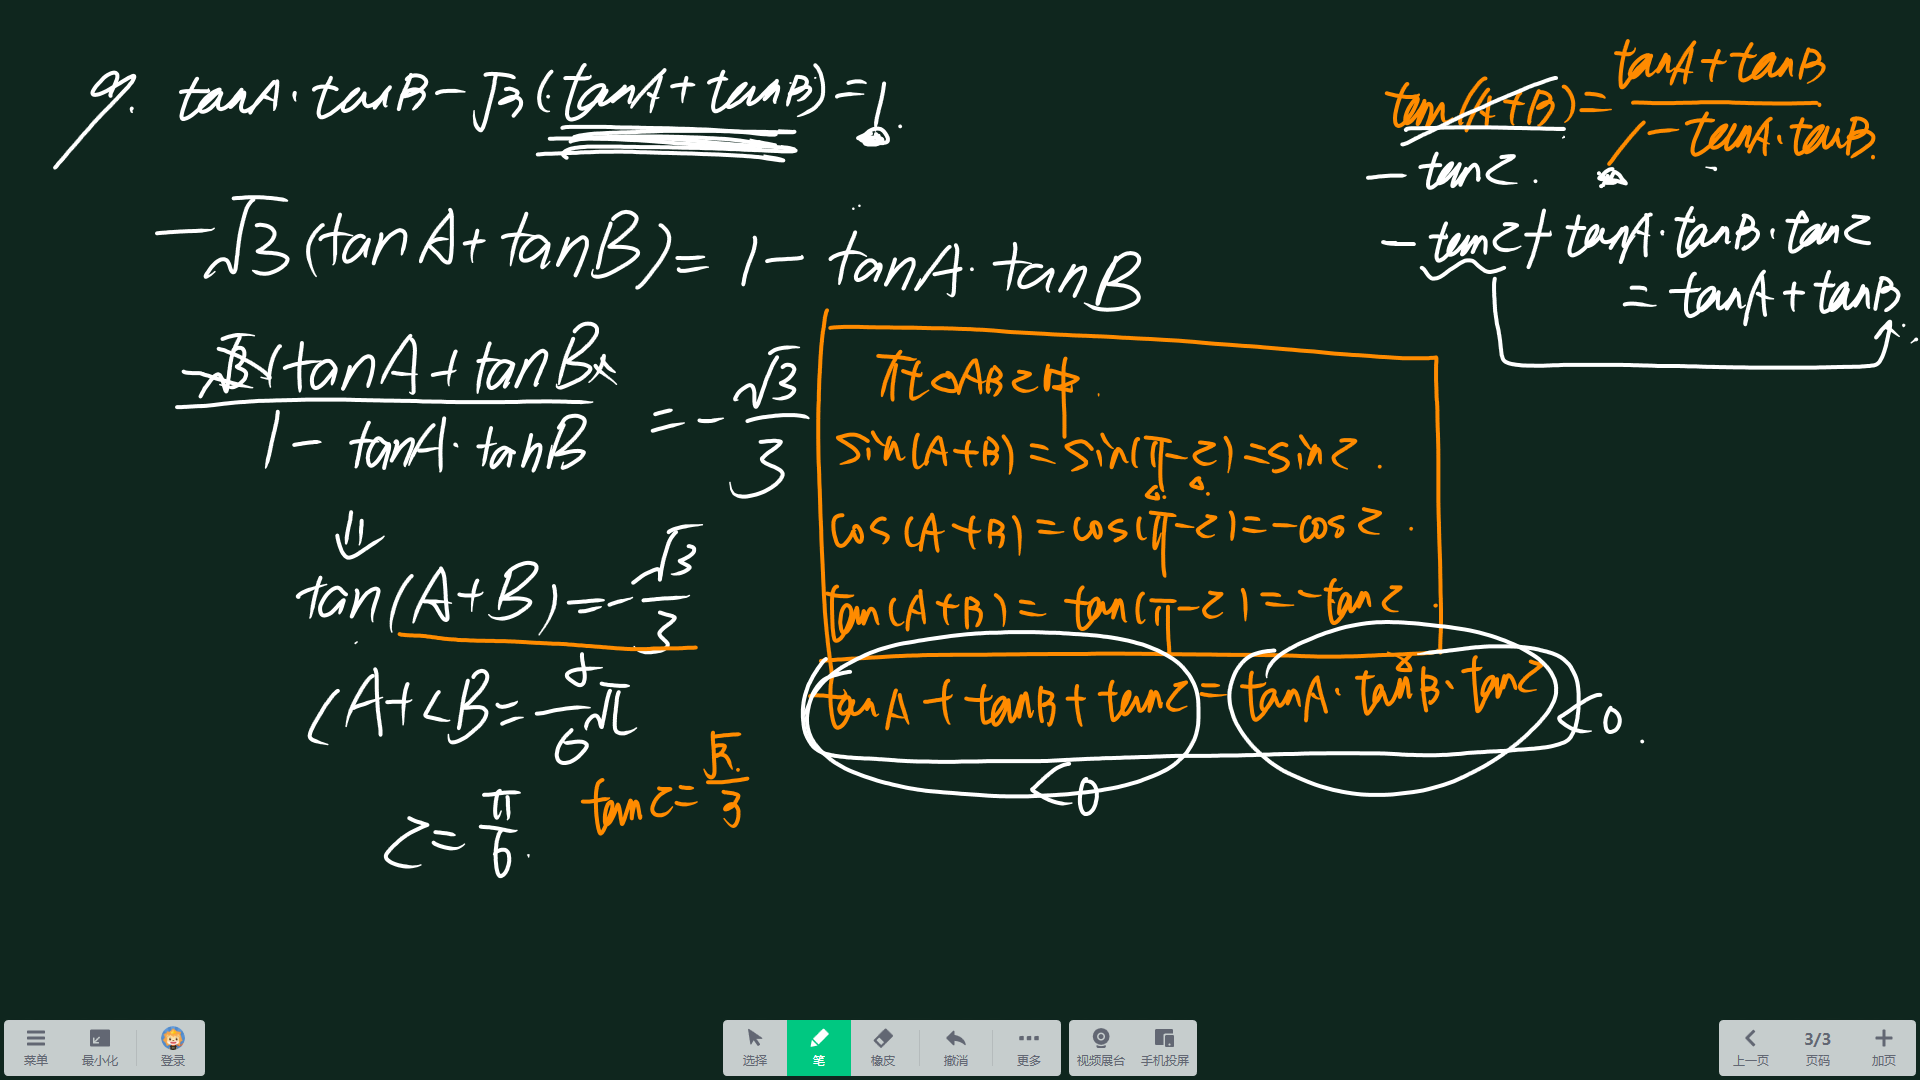 9. tanA·tanB-√3(tanA+tanB)=1.
-√3(tanA+tanB)=1-tanA·tanB
-√3(tanA+tanB)
1-tanA·tanB
=-√3/3
⇓
tan(A+B)=-√3/3
∠A+∠B=5/6π
C=π/6.
tanC=√3/3
在△ABC中.
sin(A+B)=sin(π-C)=sinC.
cos(A+B)=cos(π-C)=-cosC.
tan(A+B)=tan(π-C)=-tanC.
tanA+tanB+tanC=tanA·tanB·tanC
<0
<0.
tan(A+B)=
tanA+tanB
1-tanA·tanB.
-tanC.
-tanC+tanA·tanB·tanC
=tanA+tanB
菜单
最小化
登录
选择
笔
橡皮
撤消
更多
视频展台
手机投屏
上一页
3/3
页码
加页